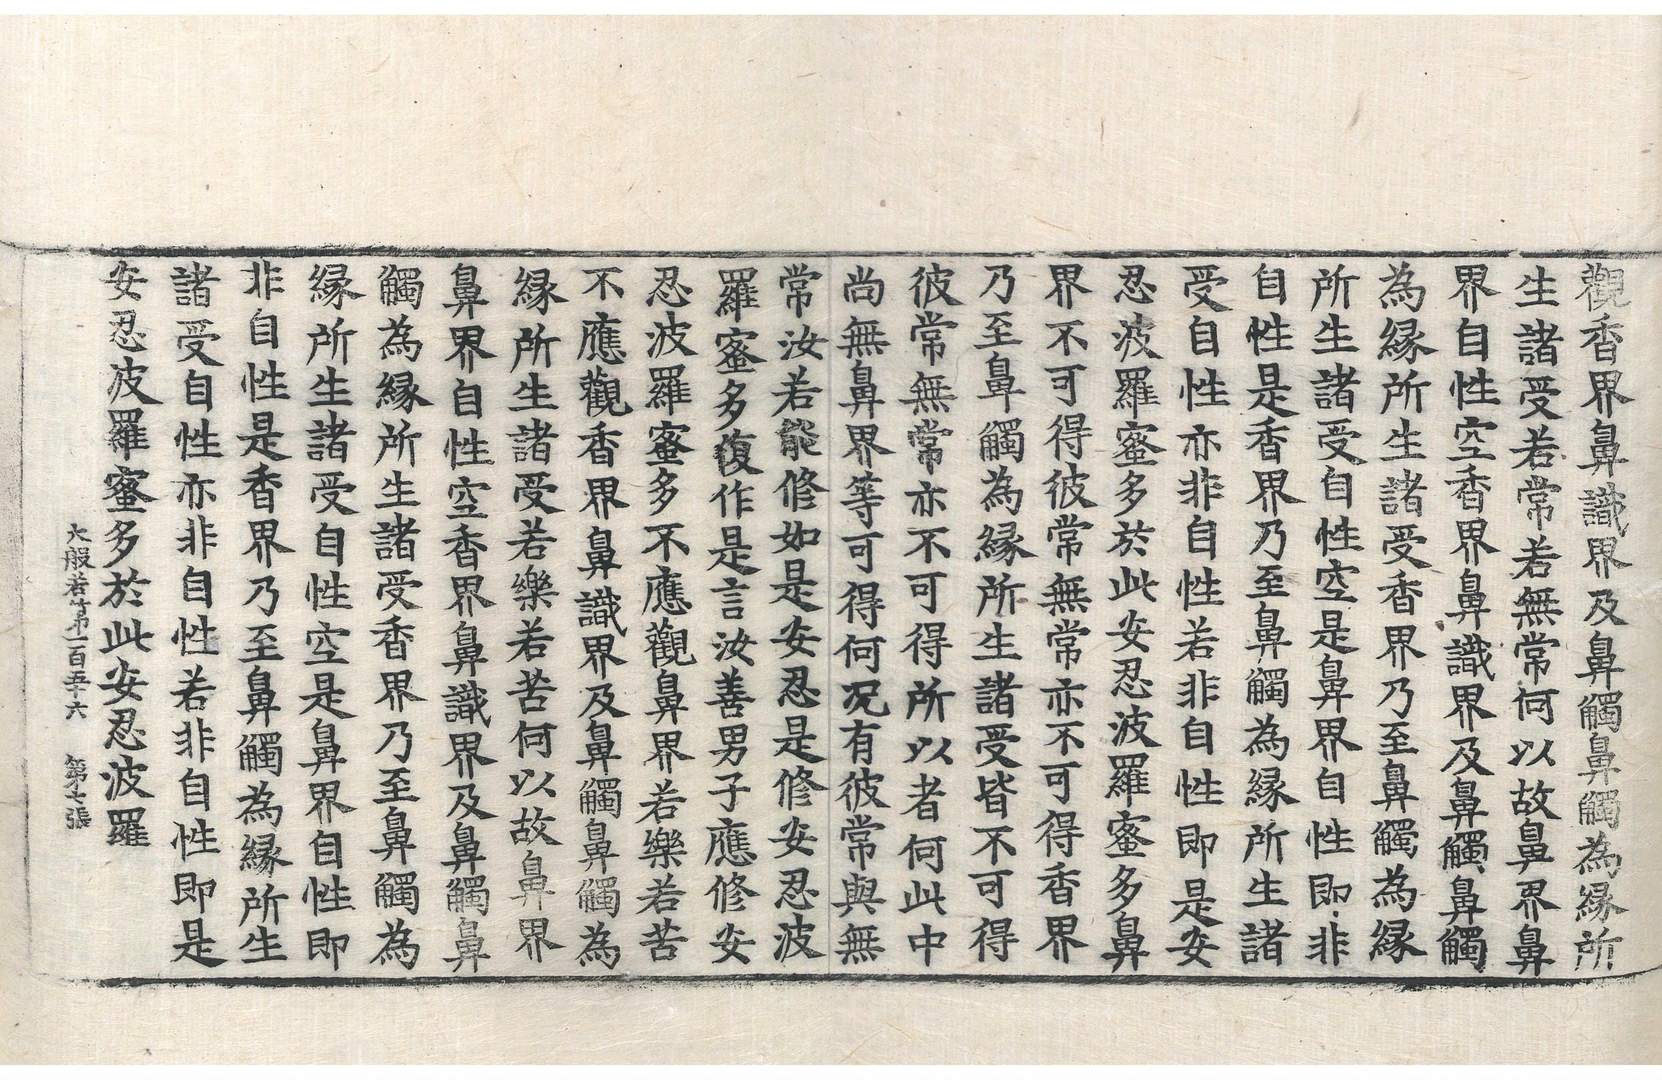 觀香界鼻識界及鼻觸鼻觸為縁所
生諸受若常若無常何以故鼻界鼻
界自性空香界鼻識界及鼻觸鼻觸
為縁所生諸受香界乃至鼻觸為縁
所生諸受自性空是鼻界自性即非
自性是香界乃至鼻觸為縁所生諸
受自性亦非自性若非自性即是安
忍波羅蜜多於此安忍波羅蜜多鼻
界不可得彼常無常亦不可得香界
乃至鼻觸為縁所生諸受皆不可得
彼常無常亦不可得所以者何此中
尚無鼻界等可得何况有彼常與無
常汝若能修如是安忍是修安忍波
羅蜜多復作是言汝善男子應修安
忍波羅蜜多不應觀鼻界若樂若苦
不應觀香界鼻識界及鼻觸鼻觸為
縁所生諸受若樂若苦何以故鼻界
鼻界自性空香界鼻識界及鼻觸鼻
觸為縁所生諸受香界乃至鼻觸為
縁所生諸受自性空是鼻界自性即
非自性是香界乃至鼻觸為縁所生
諸受自性亦非自性若非自性即是
安忍波羅蜜多於此安忍波羅
大般若第一百五十六 第七張